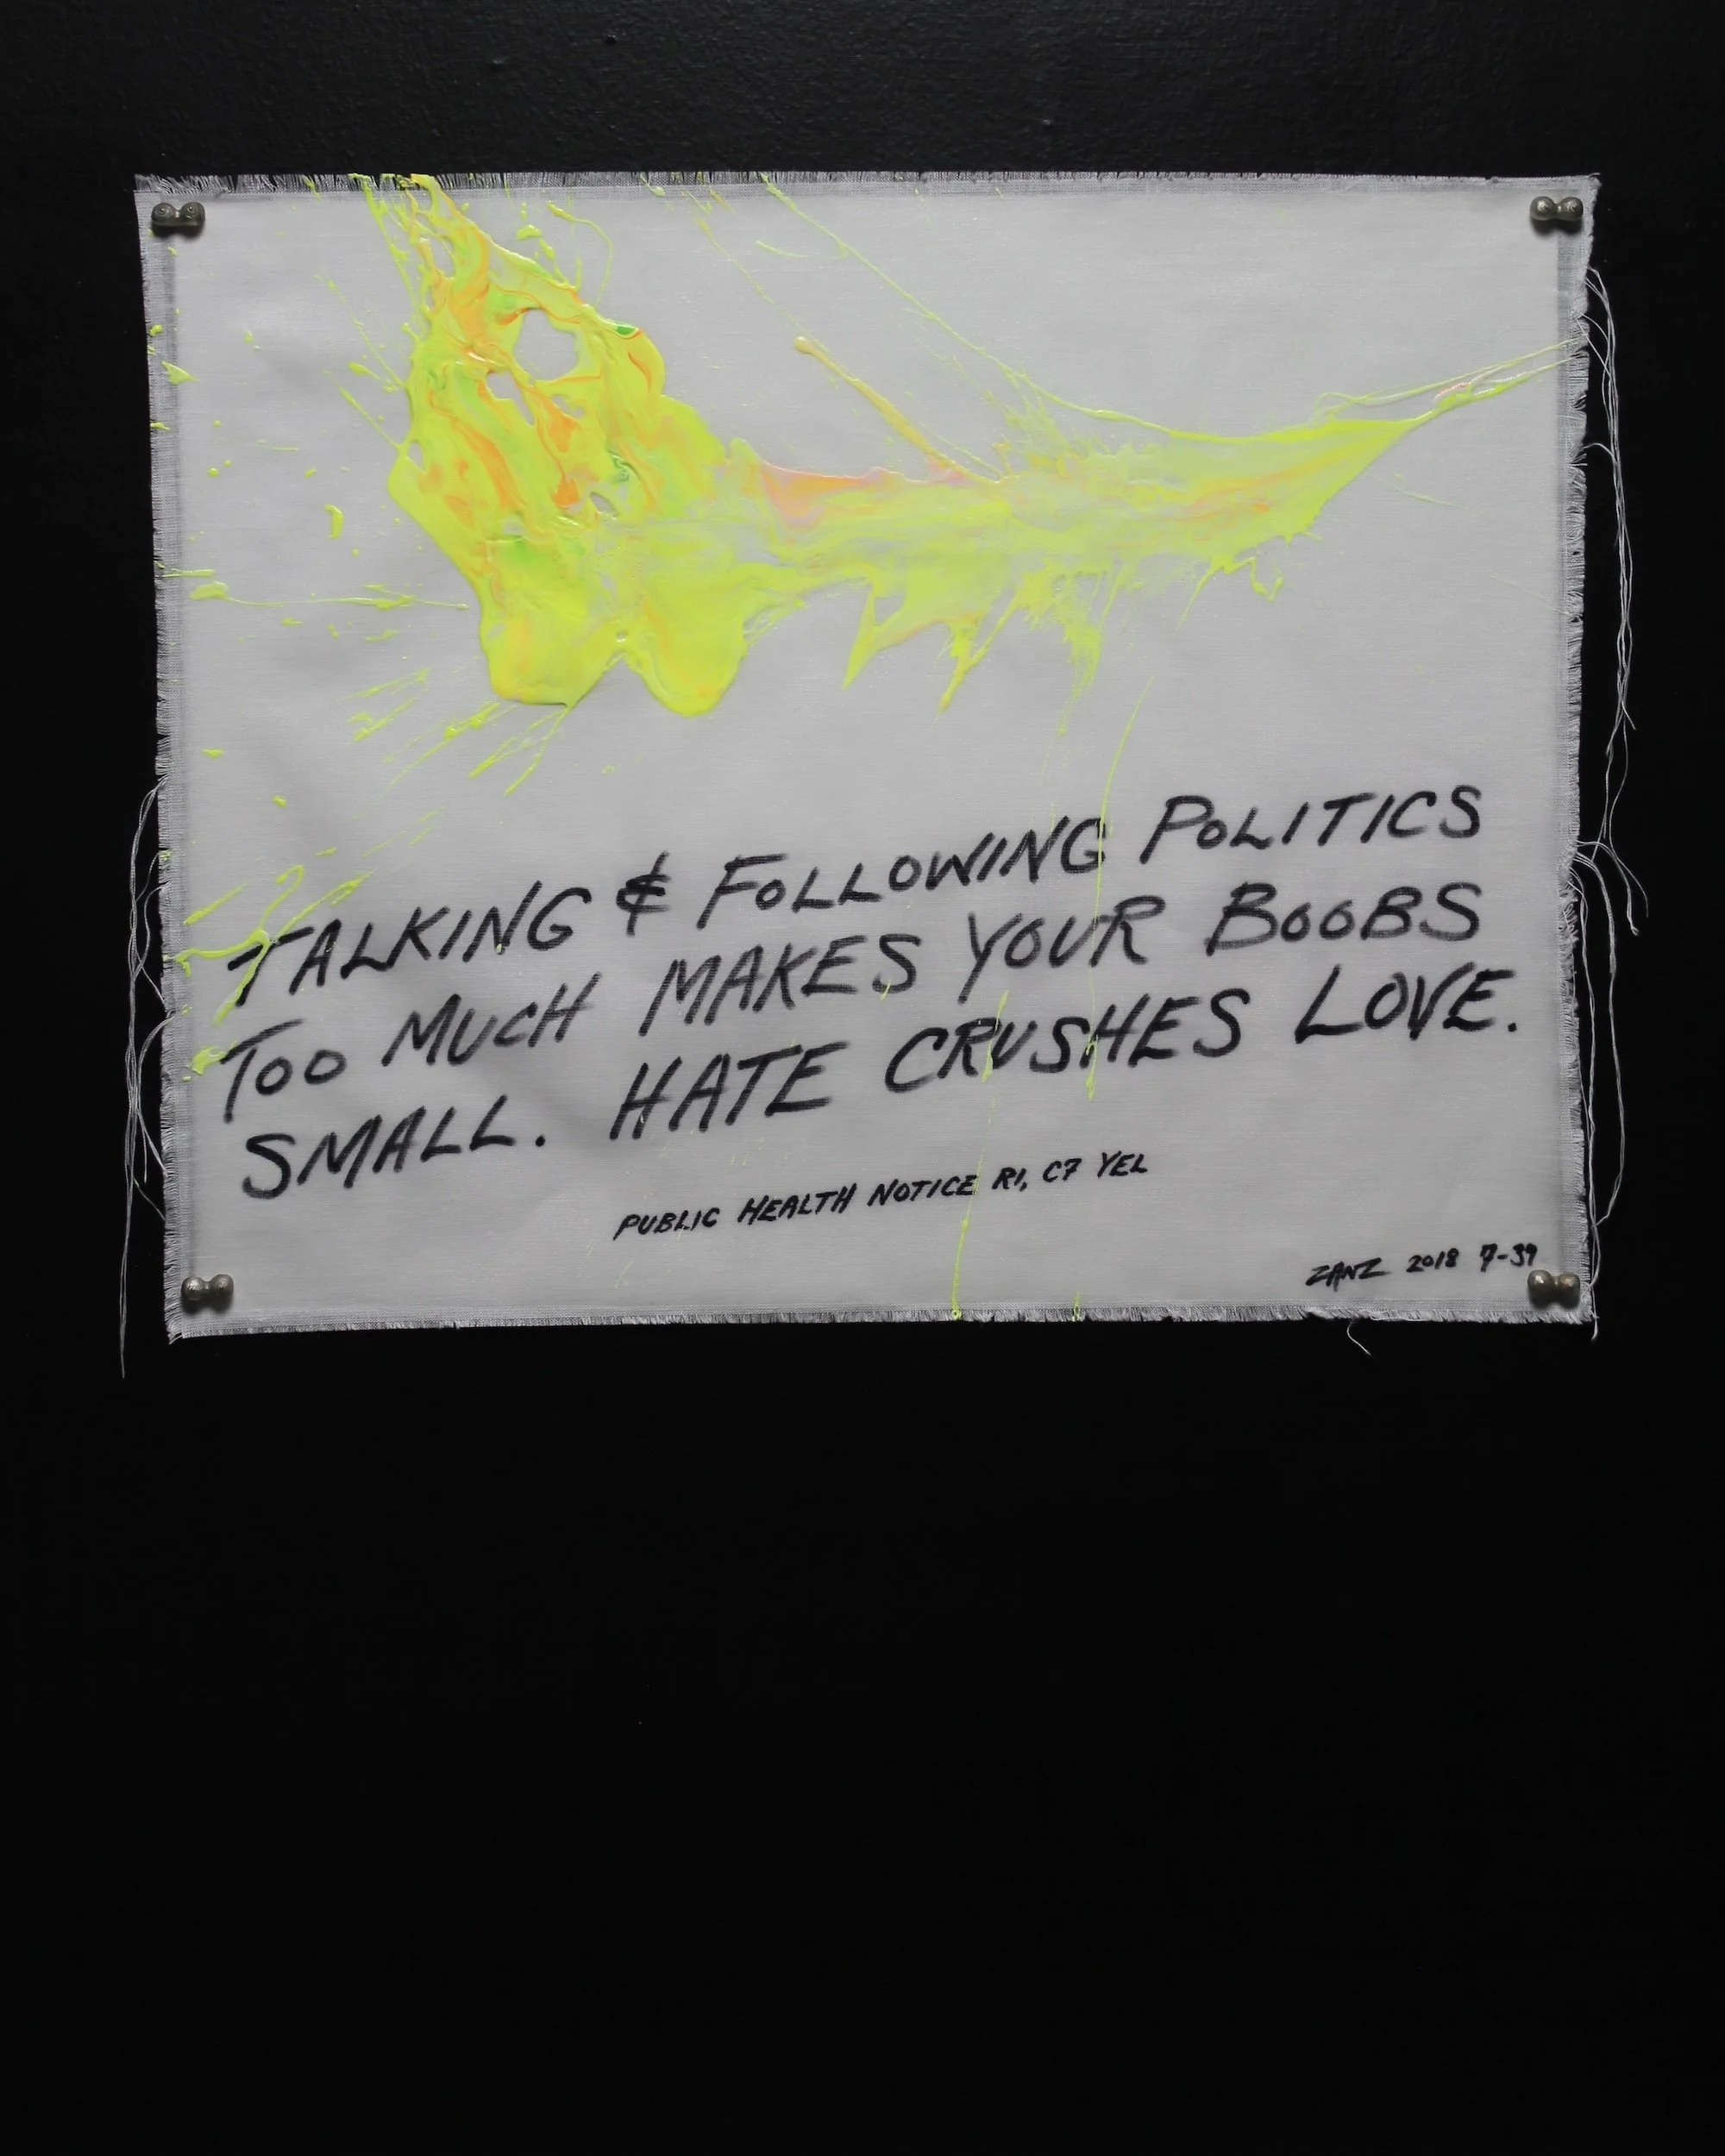 TALKING & FOLLOWING POLITICS
TOO MUCH MAKES YOUR BOOBS
SMALL. HATE CRUSHES LOVE.
PUBLIC HEALTH NOTICE R1, C7 YEL
ZANZ 2018 7-39